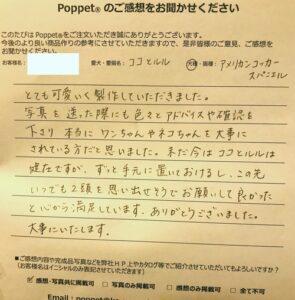 Poppet® のご感想をお聞かせください
このたびはPoppet®をご注文いただき誠にありがとうございます。
今後のより良い商品作りの参考にさせていただきますので、是非皆様のご意見、ご感想を
お聞かせください。
お客様名: 愛犬・愛猫名: ココとルル 犬種・猫種: アメリカンコッカー
スパニエル
とても可愛いく製作していただきました。
写真を送った際にも色々とアドバイスや確認を
下さり 本当に ワンちゃんやネコちゃんを大事に
されている方だと思いました。まだ今は ココとルルは
健在ですが、ずっと手元に置いておけるし、この先
いつでも2頭を思い出せそうでお願いして良かった
と心から満足しています。ありがとうございました。
大事にいたします。
■ご感想内容や完成品写真などを弊社HP上やカタログ等でご紹介させていただいてもよろしいですか?
(お客様名はイニシャルのみ表記させていただきます)
感想・写真共に掲載可 □写真のみ掲載可 □感想のみ掲載可 □全て不可
Email: